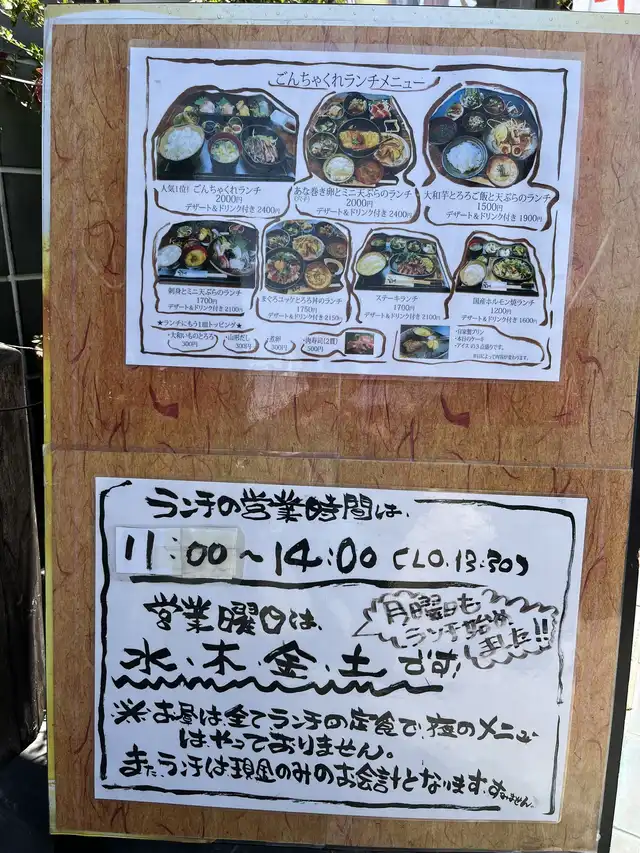 ごんちゃくれランチメニュー
人気1位! ごんちゃくれランチ
2000円
デザート&ドリンク付き 2400円
あな巻き卵とミニ天ぷらのランチ
(穴子)
2000円
デザート&ドリンク付き 2400円
大和芋とろろご飯と天ぷらのランチ
1500円
デザート&ドリンク付き 1900円
刺身とミニ天ぷらのランチ
1700円
デザート&ドリンク付き 2100円
まぐろユッケとろろ丼のランチ
1750円
デザート&ドリンク付き 2150円
ステーキランチ
1700円
デザート&ドリンク付き 2100円
国産ホルモン焼ランチ
1200円
デザート&ドリンク付き 1600円
★ランチにもう1皿トッピング★
・大和いものとろろ
300円
・山形だし
300円
・煮卵
300円
・肉寿司(2貫)
500円
・自家製プリン
・本日のケーキ
・アイス のさ点盛りです。
※日によって内容が変わります。
ランチの営業時間は、
11:00~14:00 (LO.13:30)
営業曜日は、
月曜日も
ランチ始め
ました!!
水・木・金・土 です!
※お昼は全てランチの定食で、夜のメニュー
はやっておりません。
また、ランチは現金のみのお会計となります。すみません。